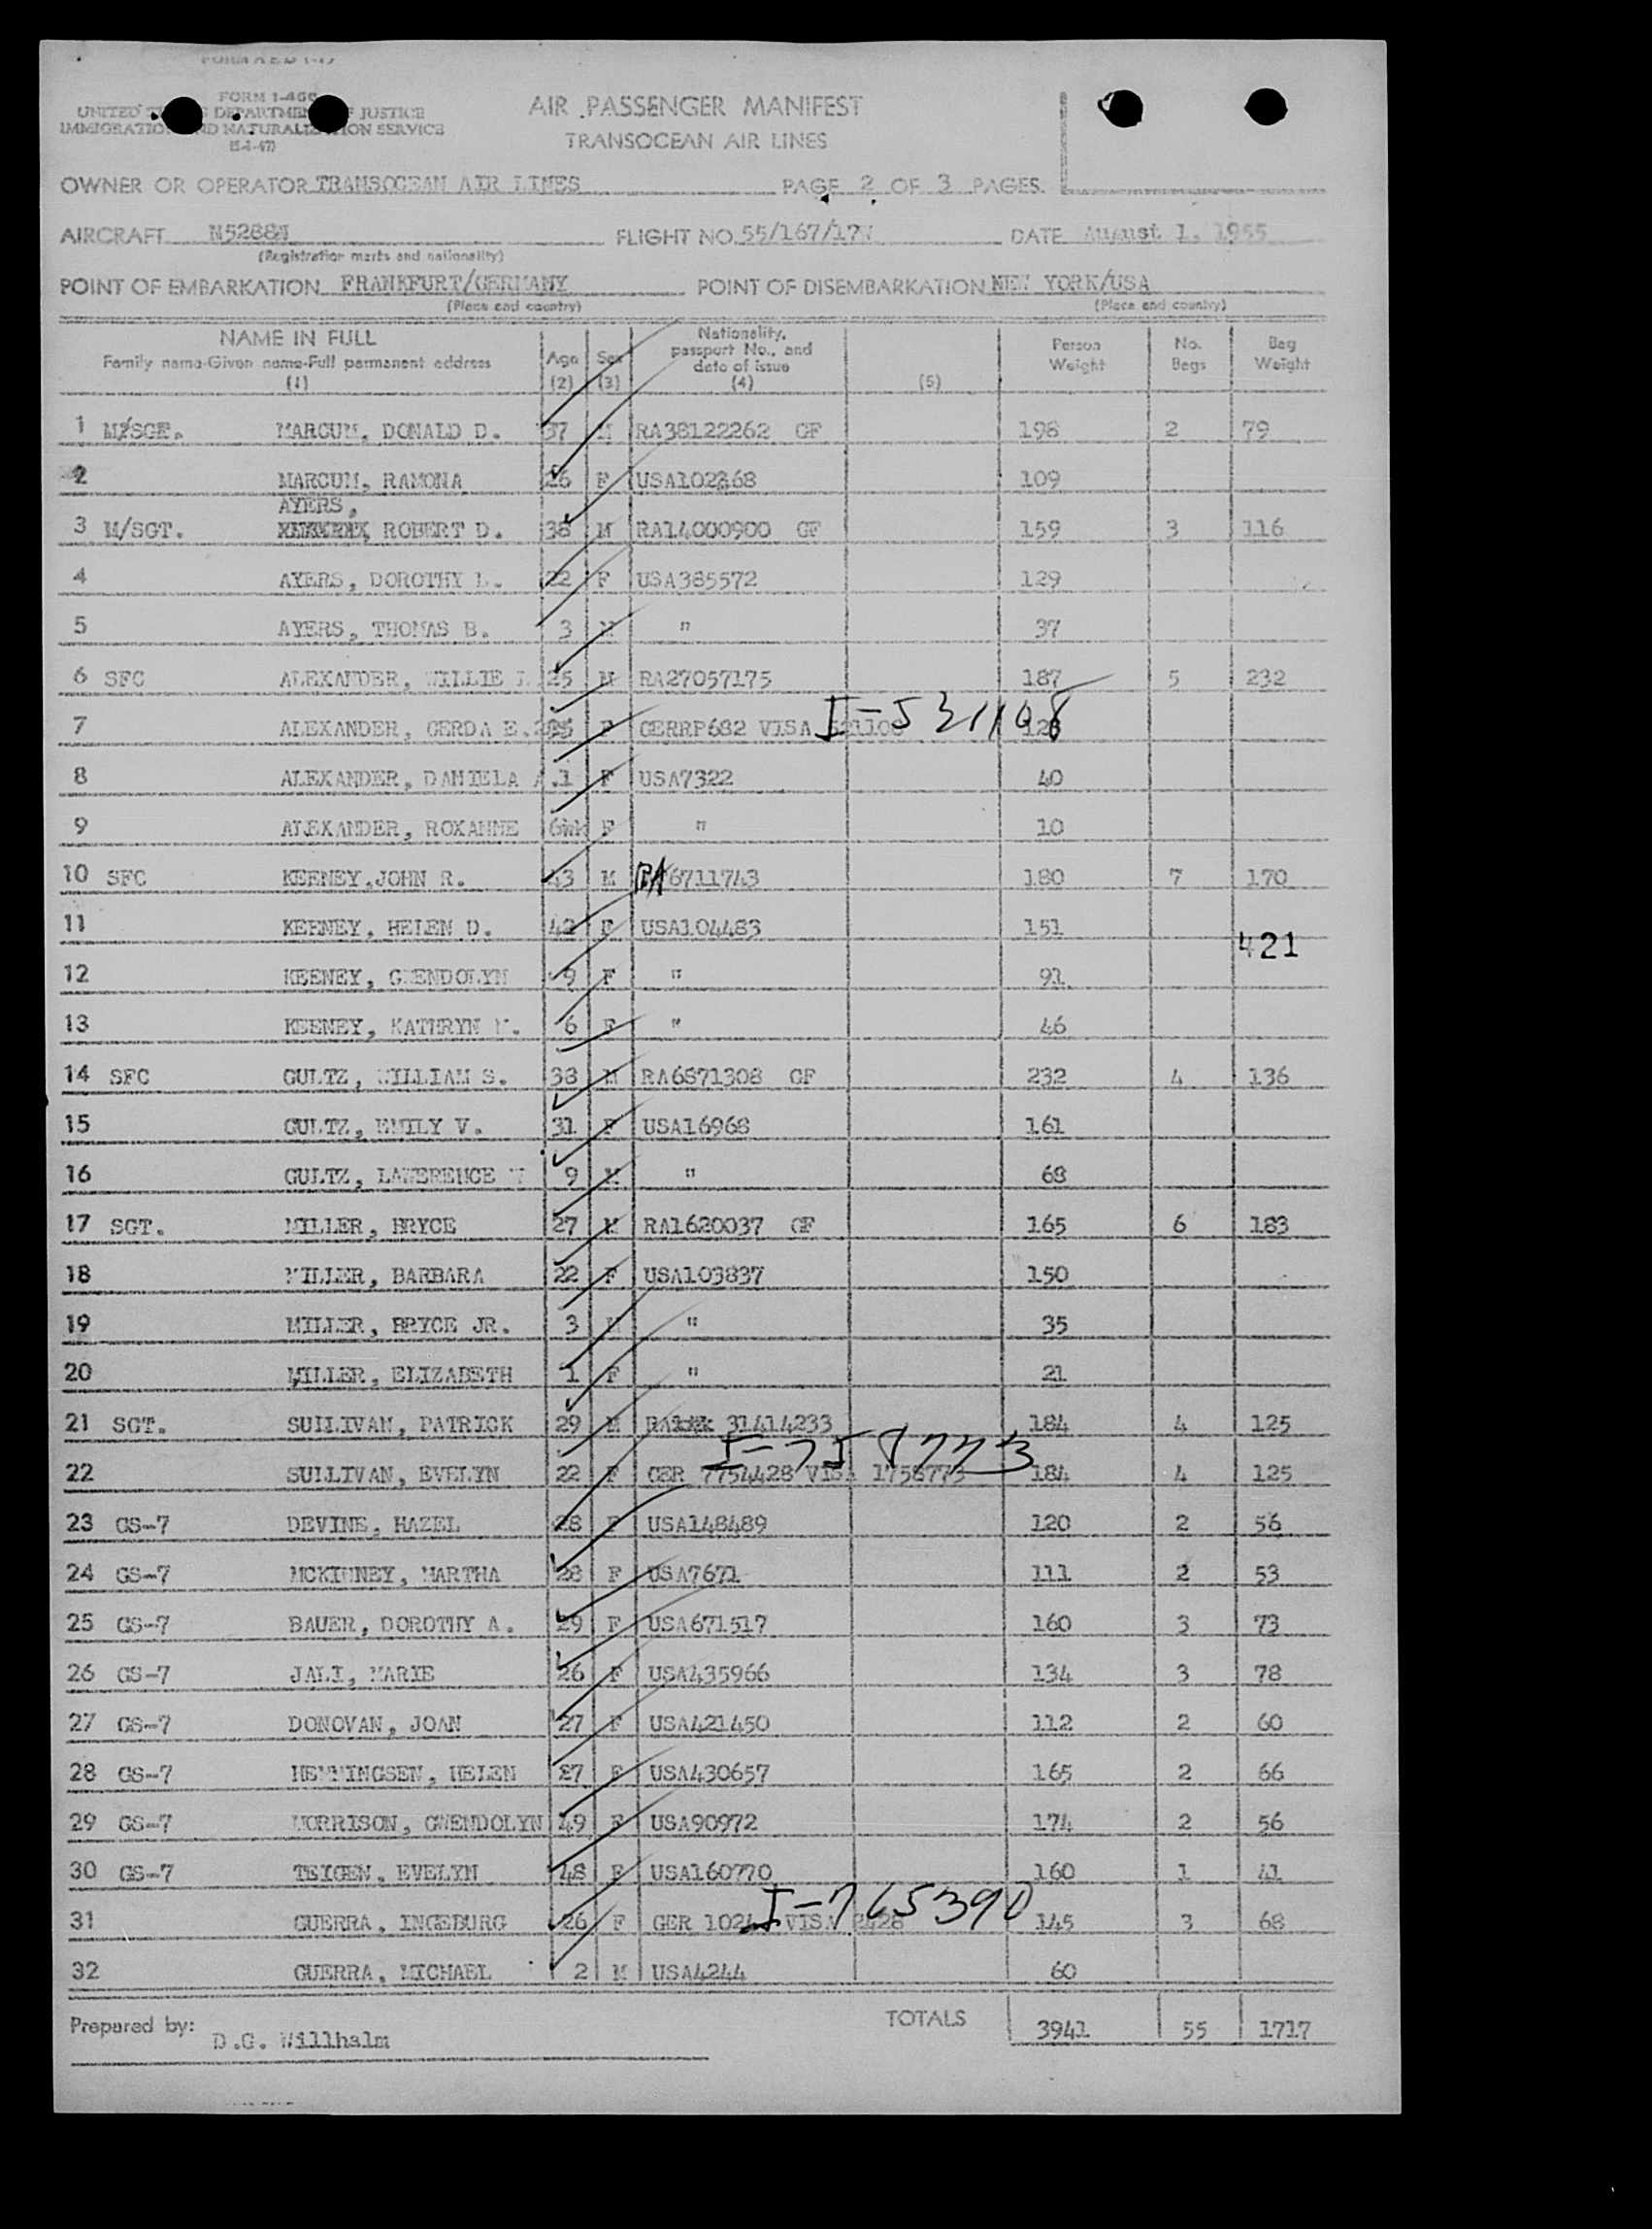 FORM I-466
UNITED DEPARTMENT OF JUSTICE
IMMIGRATION AND NATURALIZATION SERVICE
AIR PASSENGER MANIFEST
TRANSOCEAN AIR LINES
OWNER OR OPERATOR TRANSOCEAN AIR LINES PAGE 2 OF 3 PAGES.
AIRCRAFT FLIGHT NO. DATE August 1, 1955
(Registration marks and nationality)
POINT OF EMBARKATION FRANKFURT/GERMANY POINT OF DISEMBARKATION NEW YORK/USA
(Place and country) (Place and country)
NAME IN FULL
Family name-Given name-Full permanent address
(1)
Age
(2)
Sex
(3)
Nationality,
passport No., and
date of issue
(4)
(5)
Person
Weight
No.
Bags
Bag
Weight
1 M/SGT. MARCUM, DONALD D. 37 M RA38122262 GF 198 2 79
2 MARCUM, RAMONA 26 F 109
AYERS,
3 M/SGT. ROBERT D. 38 M RA14000900 GF 159 3 116
4 AYERS, DOROTHY L. 22 F USA385572 129
5 AYERS, THOMAS B. 3 M " 37
6 SFC ALEXANDER, WILLIE 25 M RA27057175 187 5 232
I-531108
7 ALEXANDER, GERDA E. F GERRP682 VISA
8 ALEXANDER, DANIELA A. 1 F USA7322 40
9 ALEXANDER, ROXANNE 6wk F " 10
10 SFC KEENEY, JOHN R. 43 M RA6711743 180 7 170
11 KEENEY, HELEN D. 42 F USA104483 151
421
12 KEENEY, GWENDOLYN 9 F " 91
13 KEENEY, KATHRYN M. 6 F " 46
14 SFC GULTZ, WILLIAM S. 38 M RA6871308 GF 232 4 136
15 GULTZ, EMILY V. 31 F USA16968 161
16 GULTZ, LAWERENCE W 9 M " 68
17 SGT. MILLER, BRYCE 27 M RA1620037 GF 165 6 183
18 MILLER, BARBARA 22 F USA103837 150
19 MILLER, BRYCE JR. 3 M " 35
20 MILLER, ELIZABETH 1 F " 21
21 SGT. SULLIVAN, PATRICK 29 M 31414233 184 4 125
I-758773
22 SULLIVAN, EVELYN 22 F GER 7754428 VISA 1758773 184 4 125
23 GS-7 DEVINE, HAZEL 28 F USA148489 120 2 56
24 GS-7 MCKINNEY, MARTHA 28 F USA7671 111 2 53
25 GS-7 BAUER, DOROTHY A. 29 F USA671517 160 3 73
26 GS-7 JALI, MARIE 26 F USA435966 134 3 78
27 GS-7 DONOVAN, JOAN 27 F USA421450 112 2 60
28 GS-7 HENNINGSEN, HELEN 27 F USA430657 165 2 66
29 GS-7 MORRISON, GWENDOLYN 49 F USA90972 174 2 56
30 GS-7 TEIGEN, EVELYN 48 F USA160770 160 1 41
I-765390
31 GUERRA, INGEBURG 26 F GER VISA 145 3 68
32 GUERRA, MICHAEL 2 M USA4244 60
TOTALS 3941 55 1717
Prepared by: D.G. Willhalm